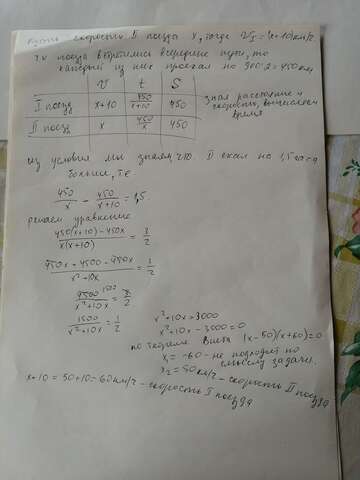 Пусть скорость II поезда x, тогда V_I = (x+10) км/ч
Тк поезда встретились всередине пути, то
каждый из них проехал по 900:2 = 450 км
V t S
I поезд x+10 450/(x+10) 450
II поезд x 450/x 450
зная расстояние и
скорость, вычисляем
время
из условия мы знаем, что II ехал на 1,5 часа
больше, т.е
450/x - 450/(x+10) = 1,5
решаем уравнение
(450(x+10) - 450x)/(x(x+10)) = 3/2
(450x + 4500 - 450x)/(x²+10x) = 3/2
4500 1500/(x²+10x) = 3/2
1500/(x²+10x) = 1/2
x²+10x = 3000
x²+10x - 3000 = 0
по теореме Виета (x-50)(x+60) = 0
x₁ = -60 - не подходит по
смыслу задачи.
x₂ = 50 км/ч - скорость II поезда
x+10 = 50+10 = 60 км/ч - скорость I поезда